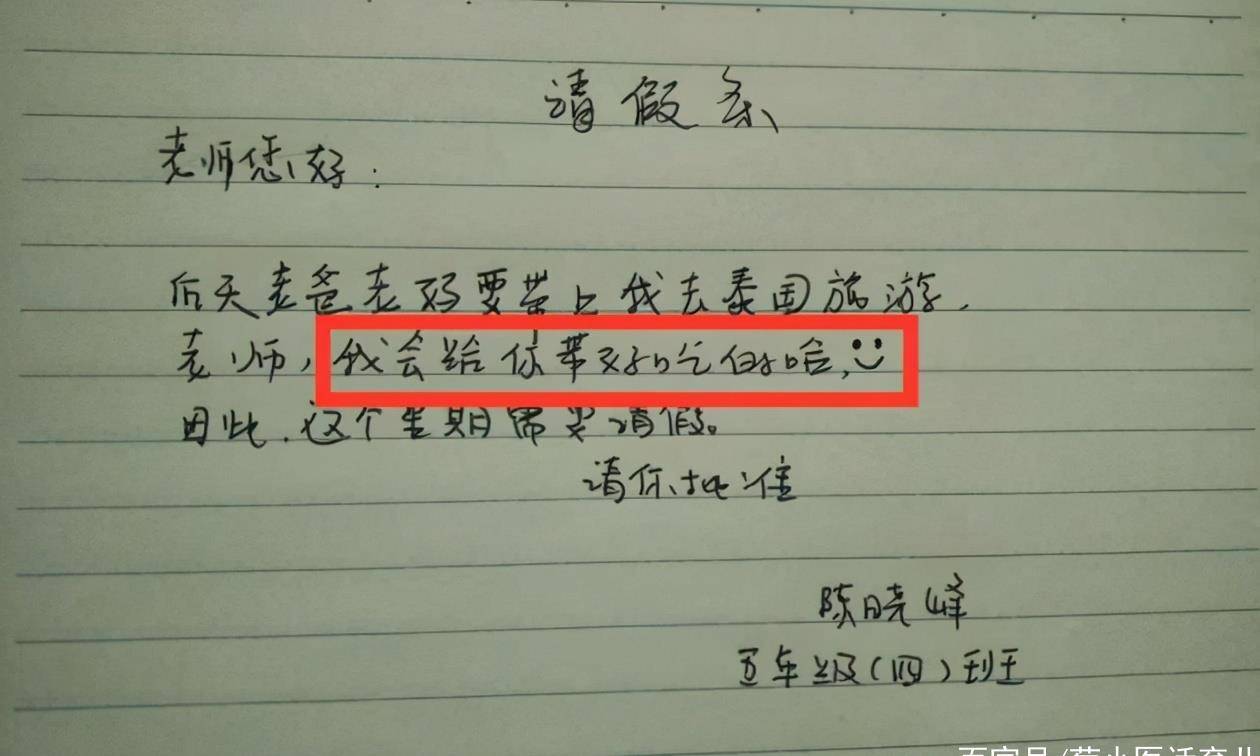 请假条
老师您好:
后天老爸老妈要带上我去泰国旅游.
老师,我会给你带好吃的哈.
因此.这个星期需要请假。
请你批准
陈晓峰
五年级(四)班
百家号/萤火医话育儿